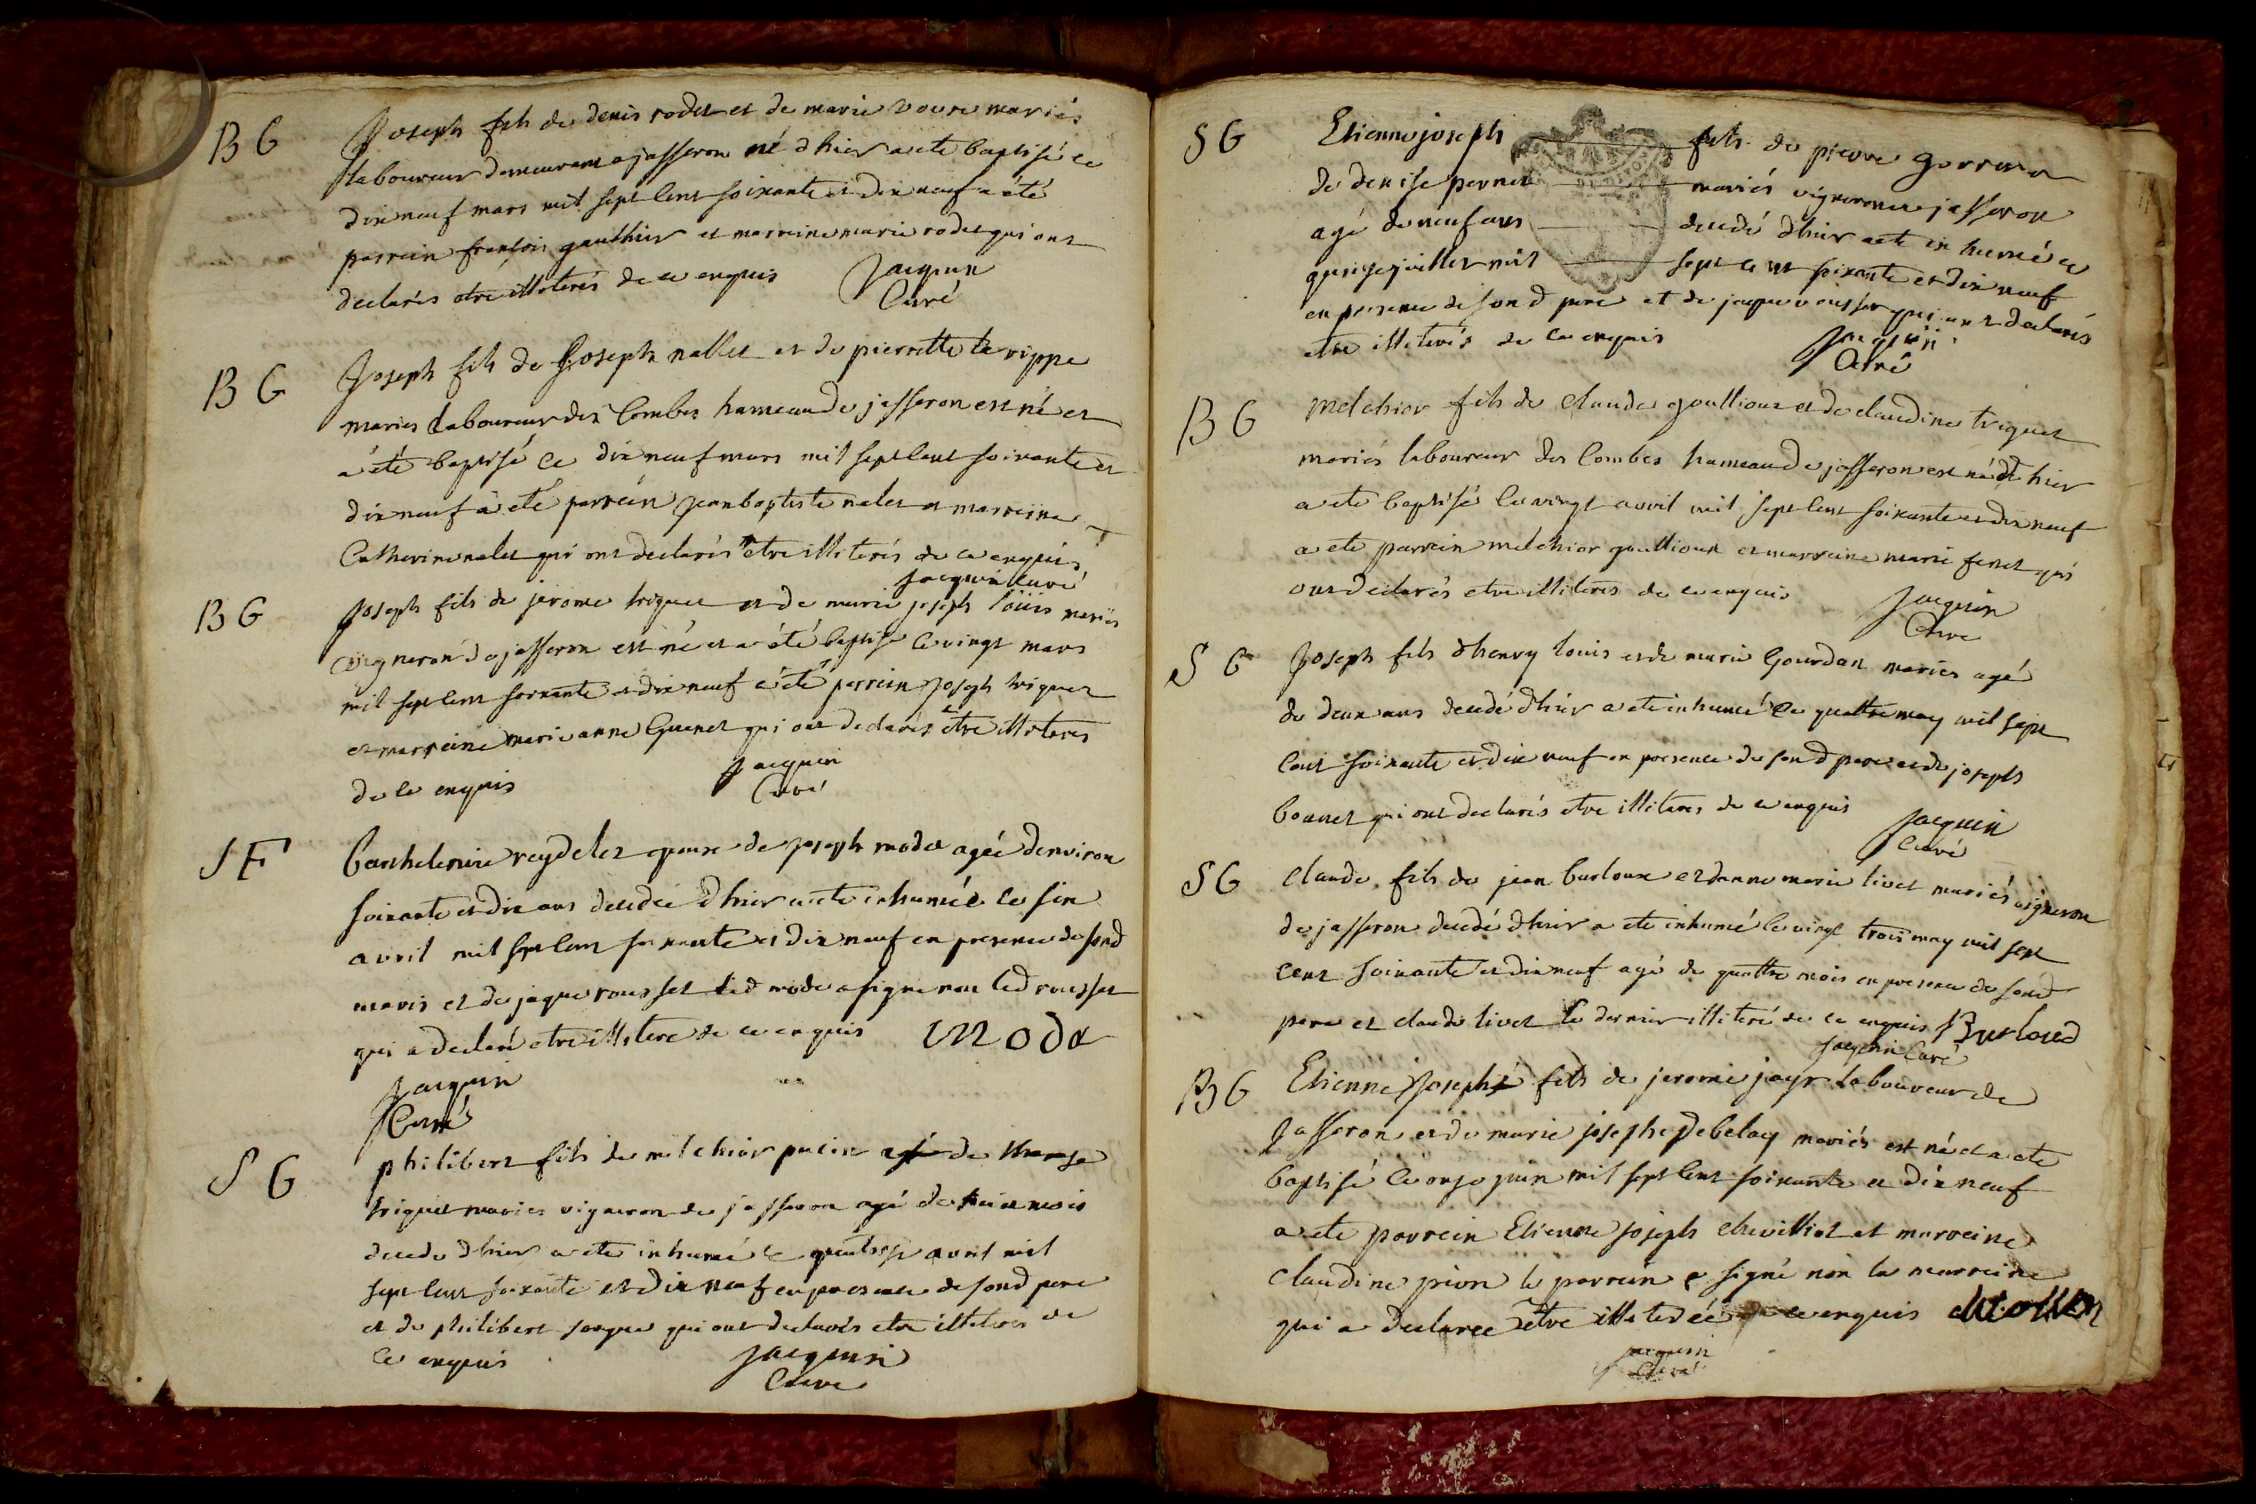 BG
Joseph fils de denis rodet et de marie voure mariés
laboureur demeurant a jasseron né d hier a ete baptisé ce
dix neuf mars mil sept cent soixante et dix neuf a été
parrein françois gauthier et marreine marie rodet qui ont
declarés etre illiterés de ce enquis Jacquin
Curé
BG
Joseph fils de Joseph nallet et de pierrette la rippe
maries laboureur des Combes hameau de jasseron est né et
a été baptisé ce dix neuf mars mil sept cent soixante et
dix neuf a été parrein jean baptiste nalet et marreine
Catherine nalet qui ont declarés etre illiterés de ce enquis
Jacquin curé
BG
Joseph fils de jerome triquet et de marie joseph loüis mariés
vigneron de jasseron est né et a été baptisé ce vingt mars
mil sept cent soixante et dix neuf a été parrein Joseph triquet
et marreine marie anne qui ont declarés etre illiteres
de ce enquis Jacquin
Curé
SF
reydelet epouse de joseph modet agée denviron
soixante et dix ans decedée d hier a ete inhumée ce six
avril mil sept cent soixante et dix neuf en presence de sond
maris et de jaque rousset led modet a signe non led rousset
qui a declaré etre illitere de ce enquis modet
Jacquin
Curé
SG
philibert fils de melchior pucin et de
triquet maries vigneron de jasseron agé de mois
decede d hier a ete inhumé ce avril mil
sept cent soixante et dix neuf en presence de sond pere
et de philibert qui ont declarés etre illiterés de
ce enquis Jacquin
Cure
SG
Etienne joseph fils de pierre
de denise pernet mariés vigneron a jasseron
agé de neuf ans decedé d hier a ete inhumé ce
mil sept cent soixante et dix neuf
en presence de sond pere et de jaque rousset qui ont declarés
etre illiterés de ce enquis Jacquin
Curé
BG
melchior fils de claude goullioux et de claudine triquet
mariés laboureur des Combes hameau de jasseron est né d hier
a ete baptisé ce vingt avril mil sept cent soixante et dix neuf
a ete parrein melchior goullioux et marreine marie feret qui
ont declarés etre illiterés de ce enquis Jacquin
Cure
SG
Joseph fils d henry louis et de marie Gourdan maries agé
de deux ans decedé d hier a ete inhumé ce quattre may mil sept
cent soixante et dix neuf en presence de sond pere et de joseph
bonnet qui ont declarés etre illiteres de ce enquis Jacquin
Curé
SG
claude fils de jean burloux et danne marie livet mariés vigneron
de jasseron decedé d hier a ete inhumé ce vingt trois may mil sept
cent soixante et dix neuf agé de quattre mois en presence de sond
pere et claude livet le dernier illiteré de ce enquis Burloud
Jacquin Curé
BG
Etienne Joseph fils de jerome jayr laboureur de
Jasseron et de marie josephe debelay mariés est né et a ete
baptisé ce onze juin mil sept cent soixante et dix neuf
a ete parrein Etienne joseph chevilliot et marreine
claudine pion le parrein a signé non la marreine
qui a declaree etre illiterée de ce enquis
Jacquin
Curé